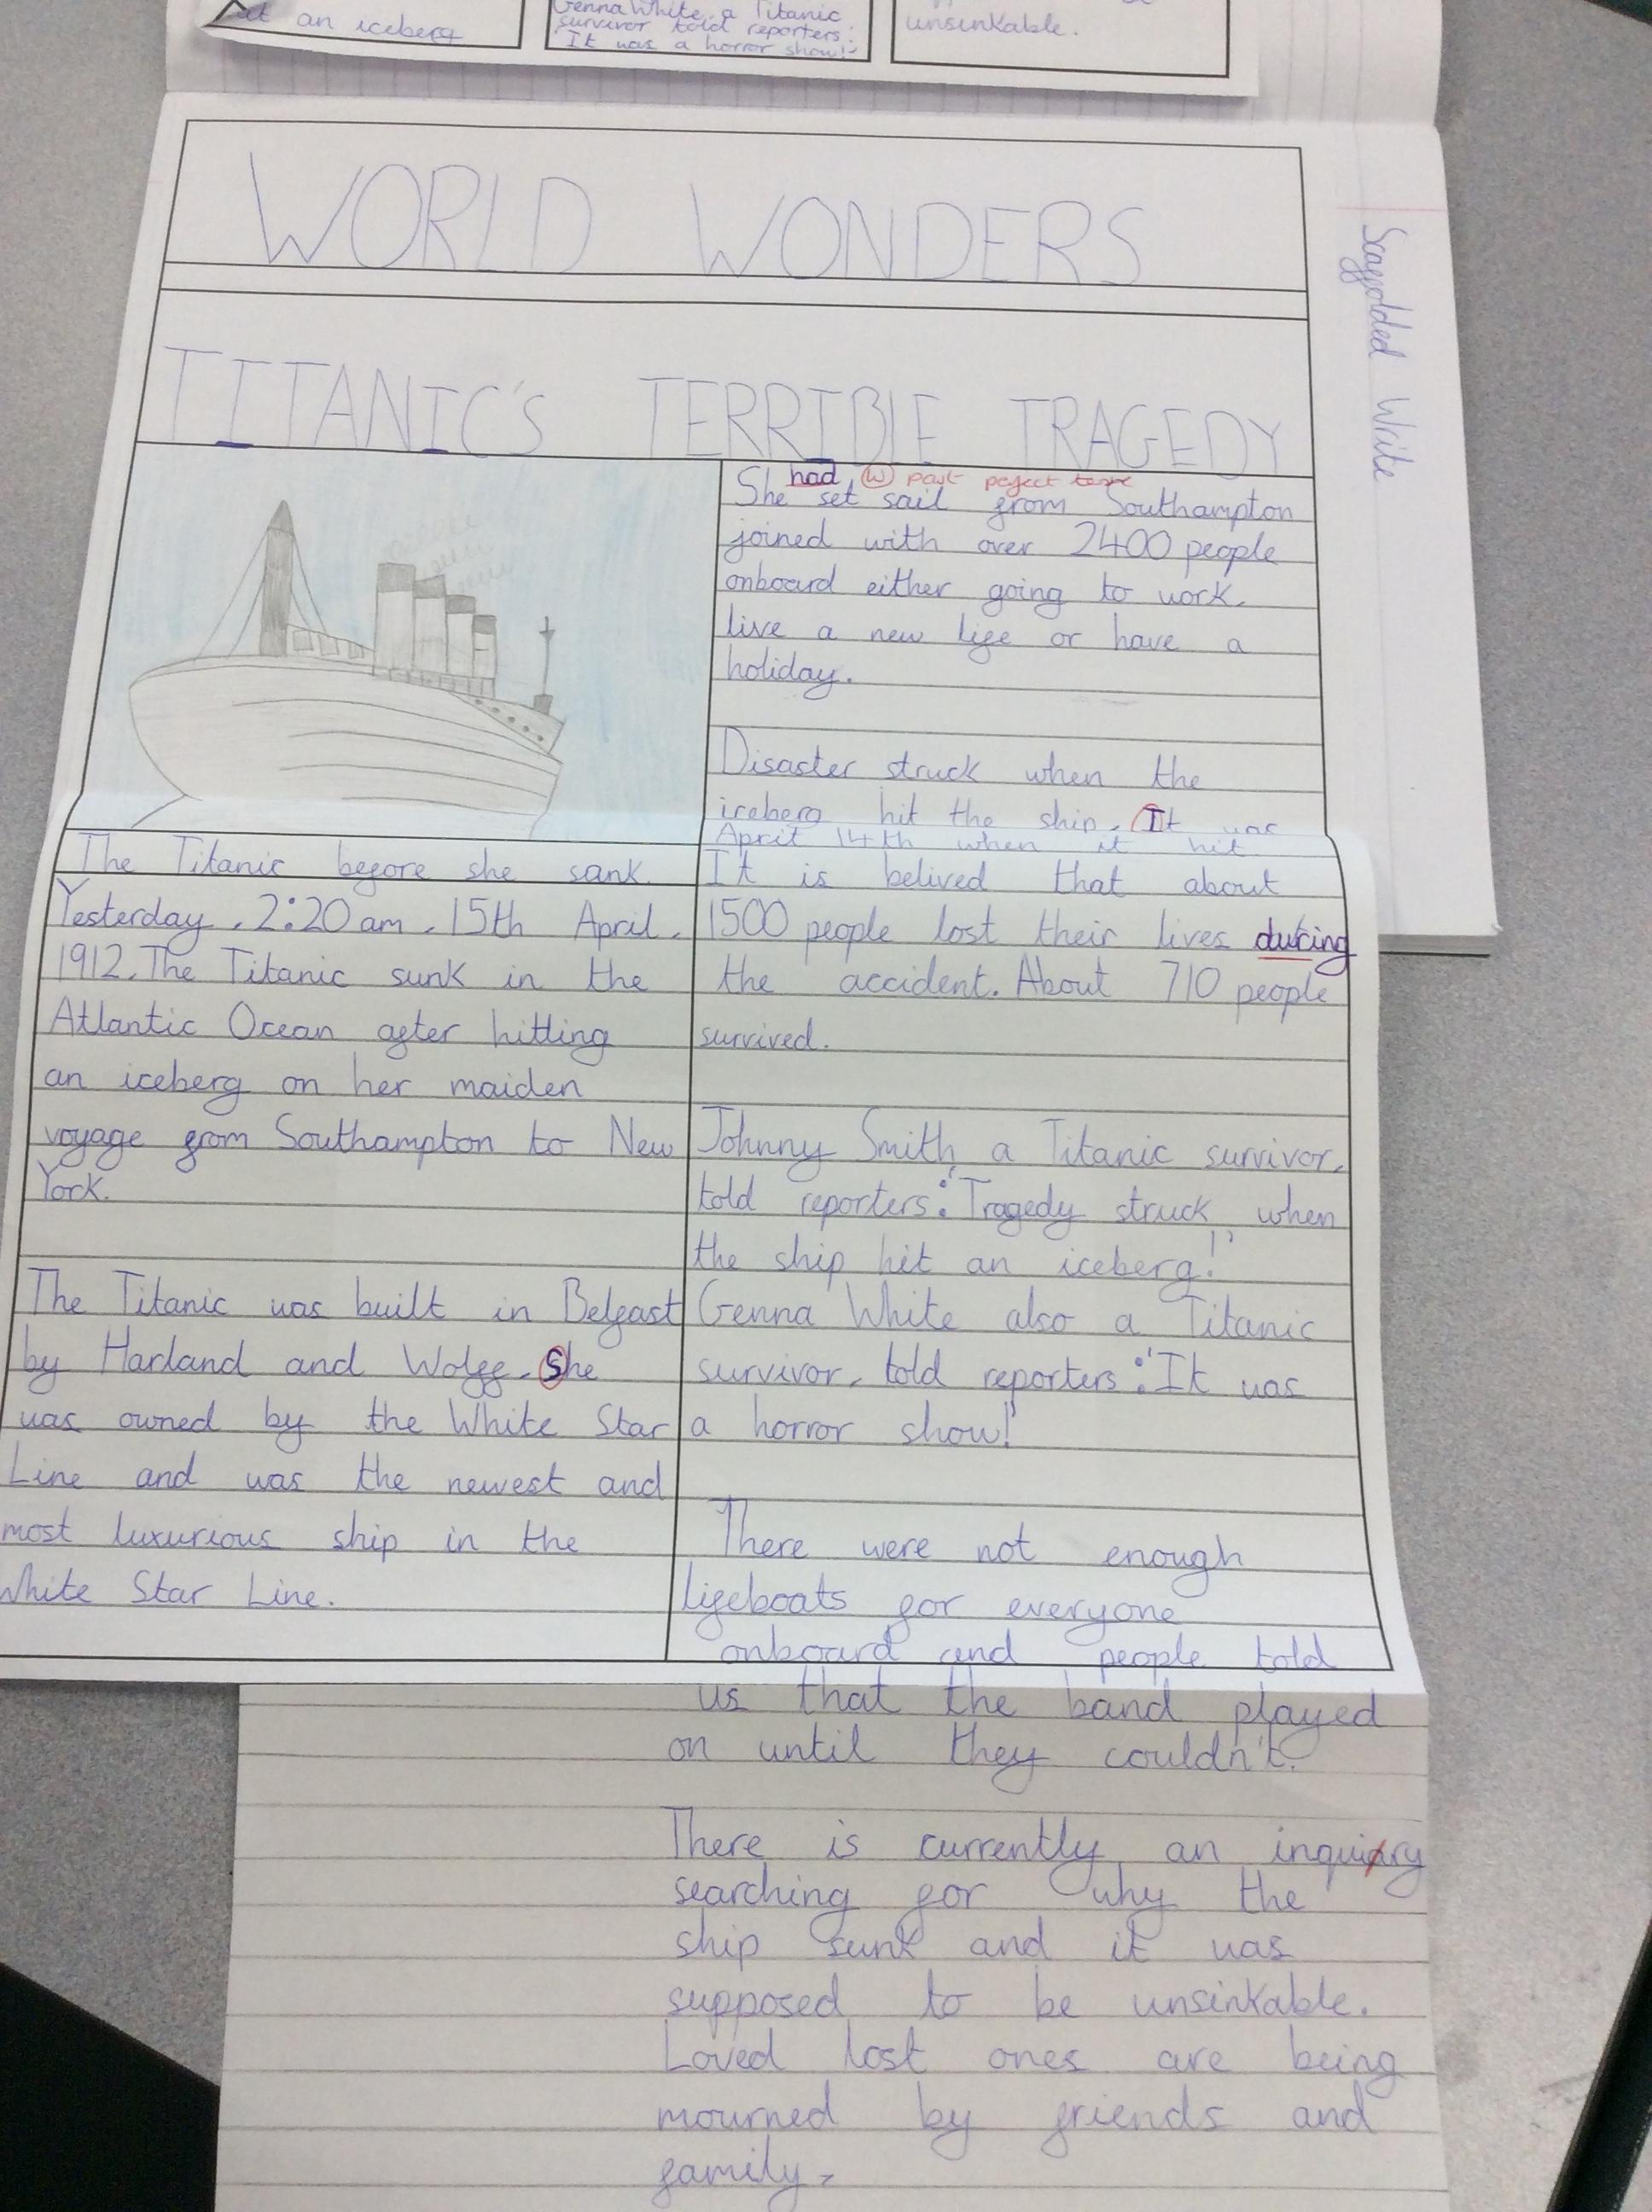 hit an iceberg
Genna White, a Titanic
survivor told reporters:
'It was a horror show!'
unsinkable.
Scaffolded Write
WORLD WONDERS
TITANIC'S TERRIBLE TRAGEDY
had (w) past perfect tense
She set sail from Southampton
joined with over 2400 people
onboard either going to work,
live a new life or have a
holiday.
Disaster struck when the
iceberg hit the ship. It was
April 14th when it hit.
The Titanic before she sank.
Yesterday, 2:20 am, 15th April,
1912, The Titanic sunk in the
Atlantic Ocean after hitting
an iceberg on her maiden
voyage from Southampton to New
York.
The Titanic was built in Belfast
by Harland and Wolff. She
was owned by the White Star
Line and was the newest and
most luxurious ship in the
White Star Line.
It is belived that about
1500 people lost their lives during
the accident. About 710 people
survived.
Johnny Smith, a Titanic survivor,
told reporters: 'Tragedy struck when
the ship hit an iceberg!'
Genna White also a Titanic
survivor, told reporters: 'It was
a horror show!'
There were not enough
lifeboats for everyone
onboard and people told
us that the band played
on until they couldn't.
There is currently an inquiry
searching for why the
ship sunk and it was
supposed to be unsinkable.
Loved lost ones are being
mourned by friends and
family.